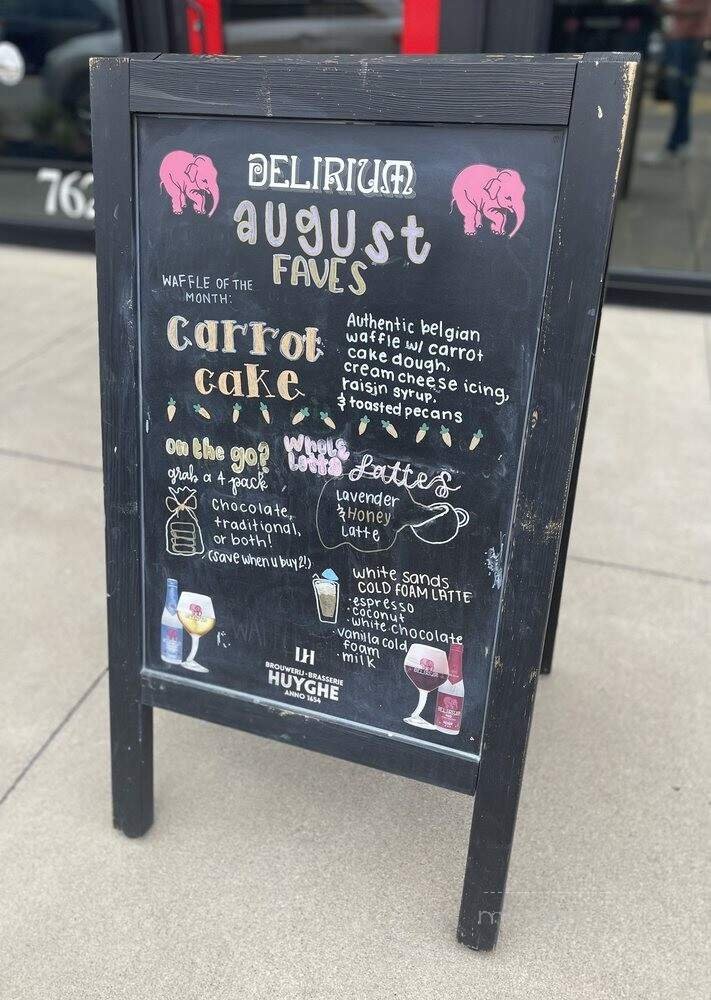 762
DELIRIUM
august
FAVES
WAFFLE OF THE
MONTH:
carrot
cake
Authentic belgian
waffle w/ carrot
cake dough,
cream cheese icing,
raisin syrup,
& toasted pecans
on the go?
grab a 4 pack
Chocolate,
traditional,
or both!
(save when u buy 2!)
Whole
lotta
Lattes
Lavender
& Honey
Latte
white sands
COLD FOAM LATTE
• espresso
• coconut
• white chocolate
• vanilla cold
foam
• milk
LH
BROUWERIJ • BRASSERIE
HUYGHE
ANNO 1654
DELIRIUM